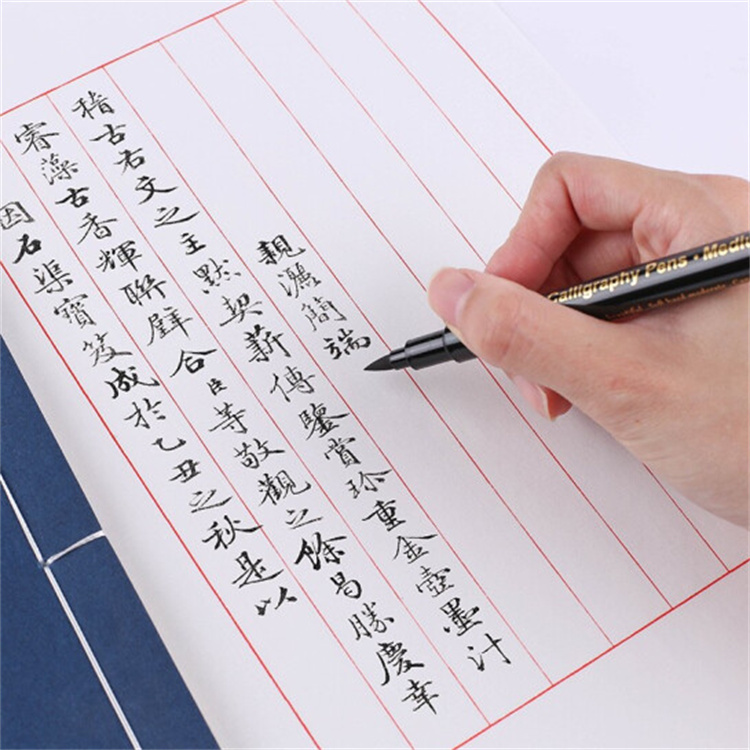 親灑簡端
稽古右文之主默契薪傳鑒賞珍重金壺墨汁
睿藻古香輝聯璧合臣等敬觀之餘曷勝慶幸
因石渠寶笈成於乙丑之秋是以
Calligraphy Pens •